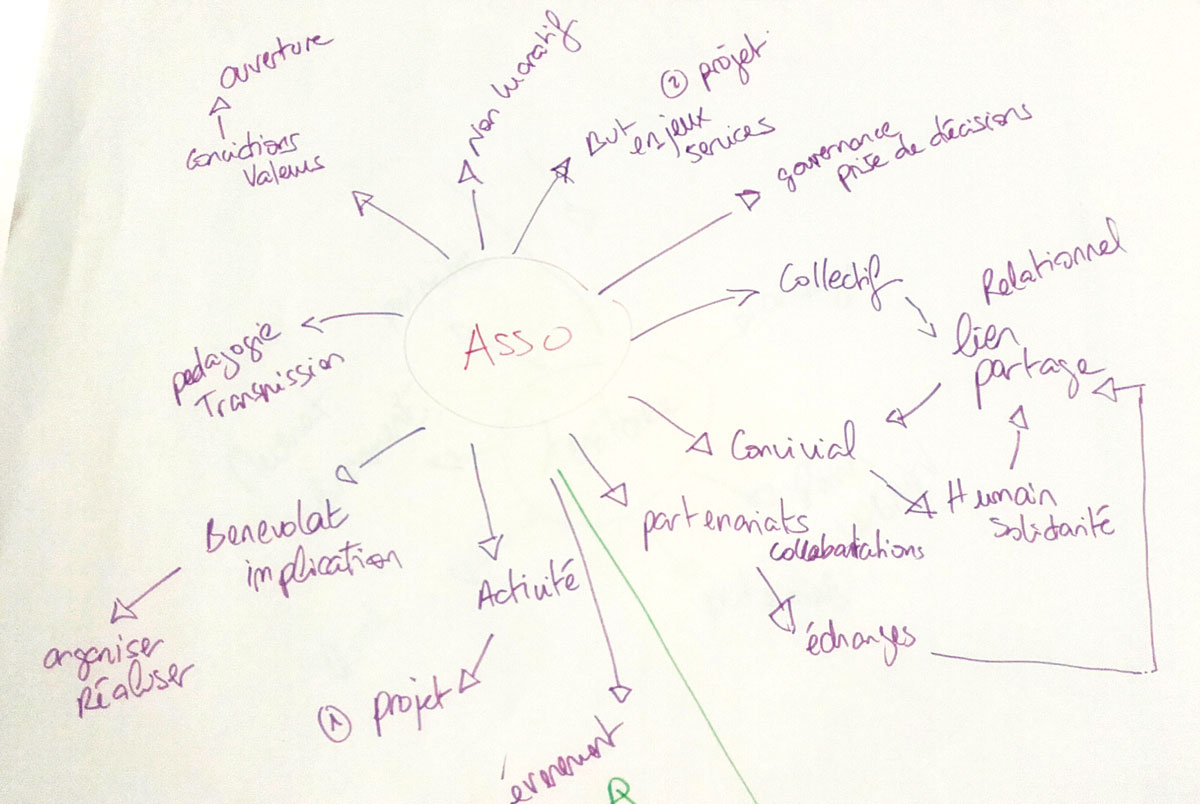 ouverture
Convictions
Valeurs
Non lucratif
② projet
But
enjeux
services
gouvernance,
prise de décisions
Collectif
Relationnel
lien
partage
Asso
pedagogie
Transmission
Convivial
Humain
Solidarité
partenariats
collabatations
Benevolat
implication
Activité
échanges
organiser
Réaliser
① projet
évenement